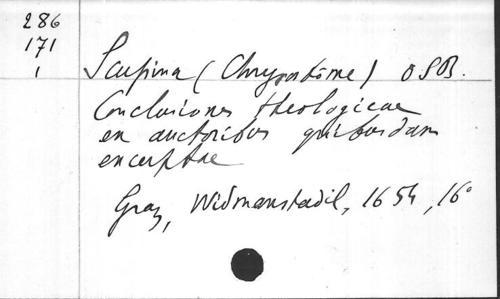 286
171
1
Scupina (Chrysostôme) OSB.
Conclusiones theologicae
ex auctoribus quibusdam
excerptae
Graz, Widmanstadil, 1654, 16°